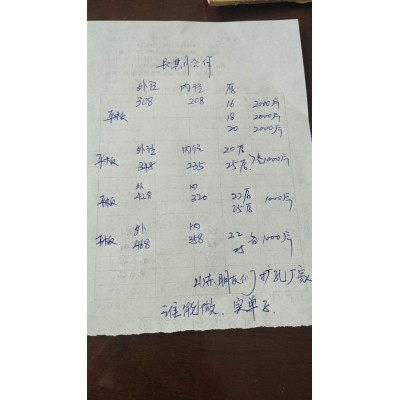 长期合作
外径 内径 厚
308 208 16 2000片
平板 18 2000片
20 2000片
平板 外径 内径 20厚
348 235 25厚 各1000片
平板 外 内 22厚
428 320 25厚 1000片
平板 外 内 22
468 358 25 各1000片
山东朋友们扩孔厂家
谁能做.实单子.